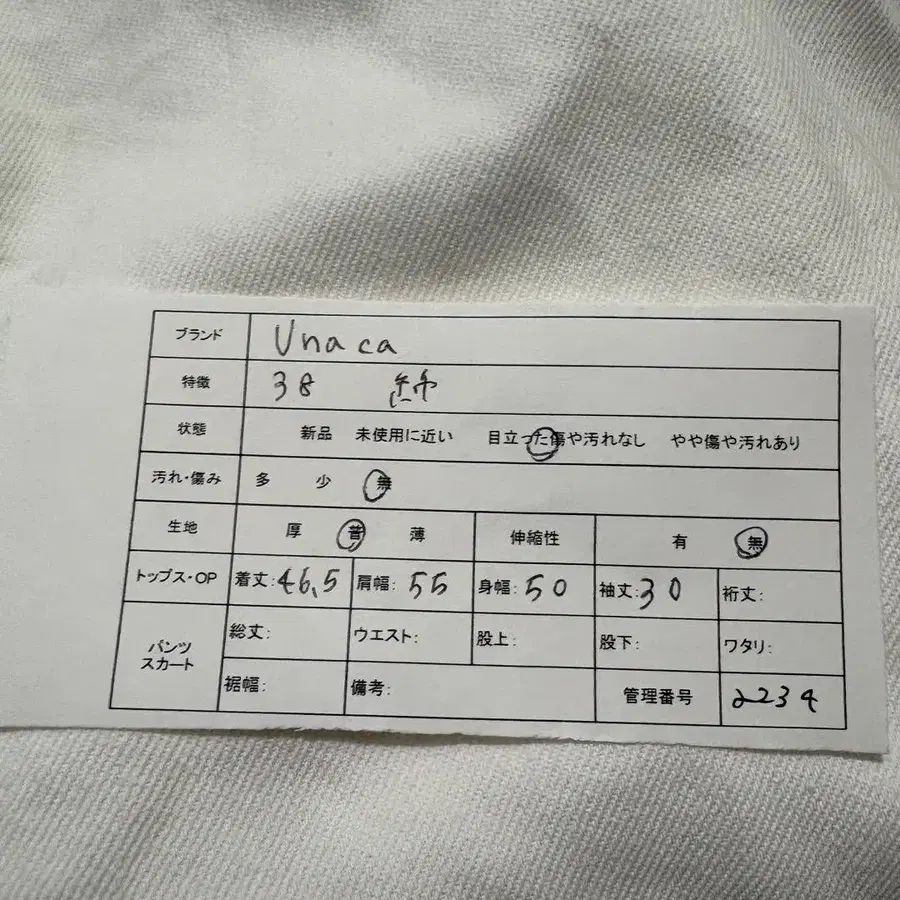 ブランド Unaca
特徴 38 綿
状態 新品 未使用に近い 目立った傷や汚れなし やや傷や汚れあり
汚れ・傷み 多 少 無
生地 厚 普 薄 伸縮性 有 無
トップス・OP 着丈:46.5 肩幅:55 身幅:50 袖丈:30 裄丈:
パンツ
スカート
総丈: ウエスト: 股上: 股下: ワタリ:
裾幅: 備考: 管理番号 2234